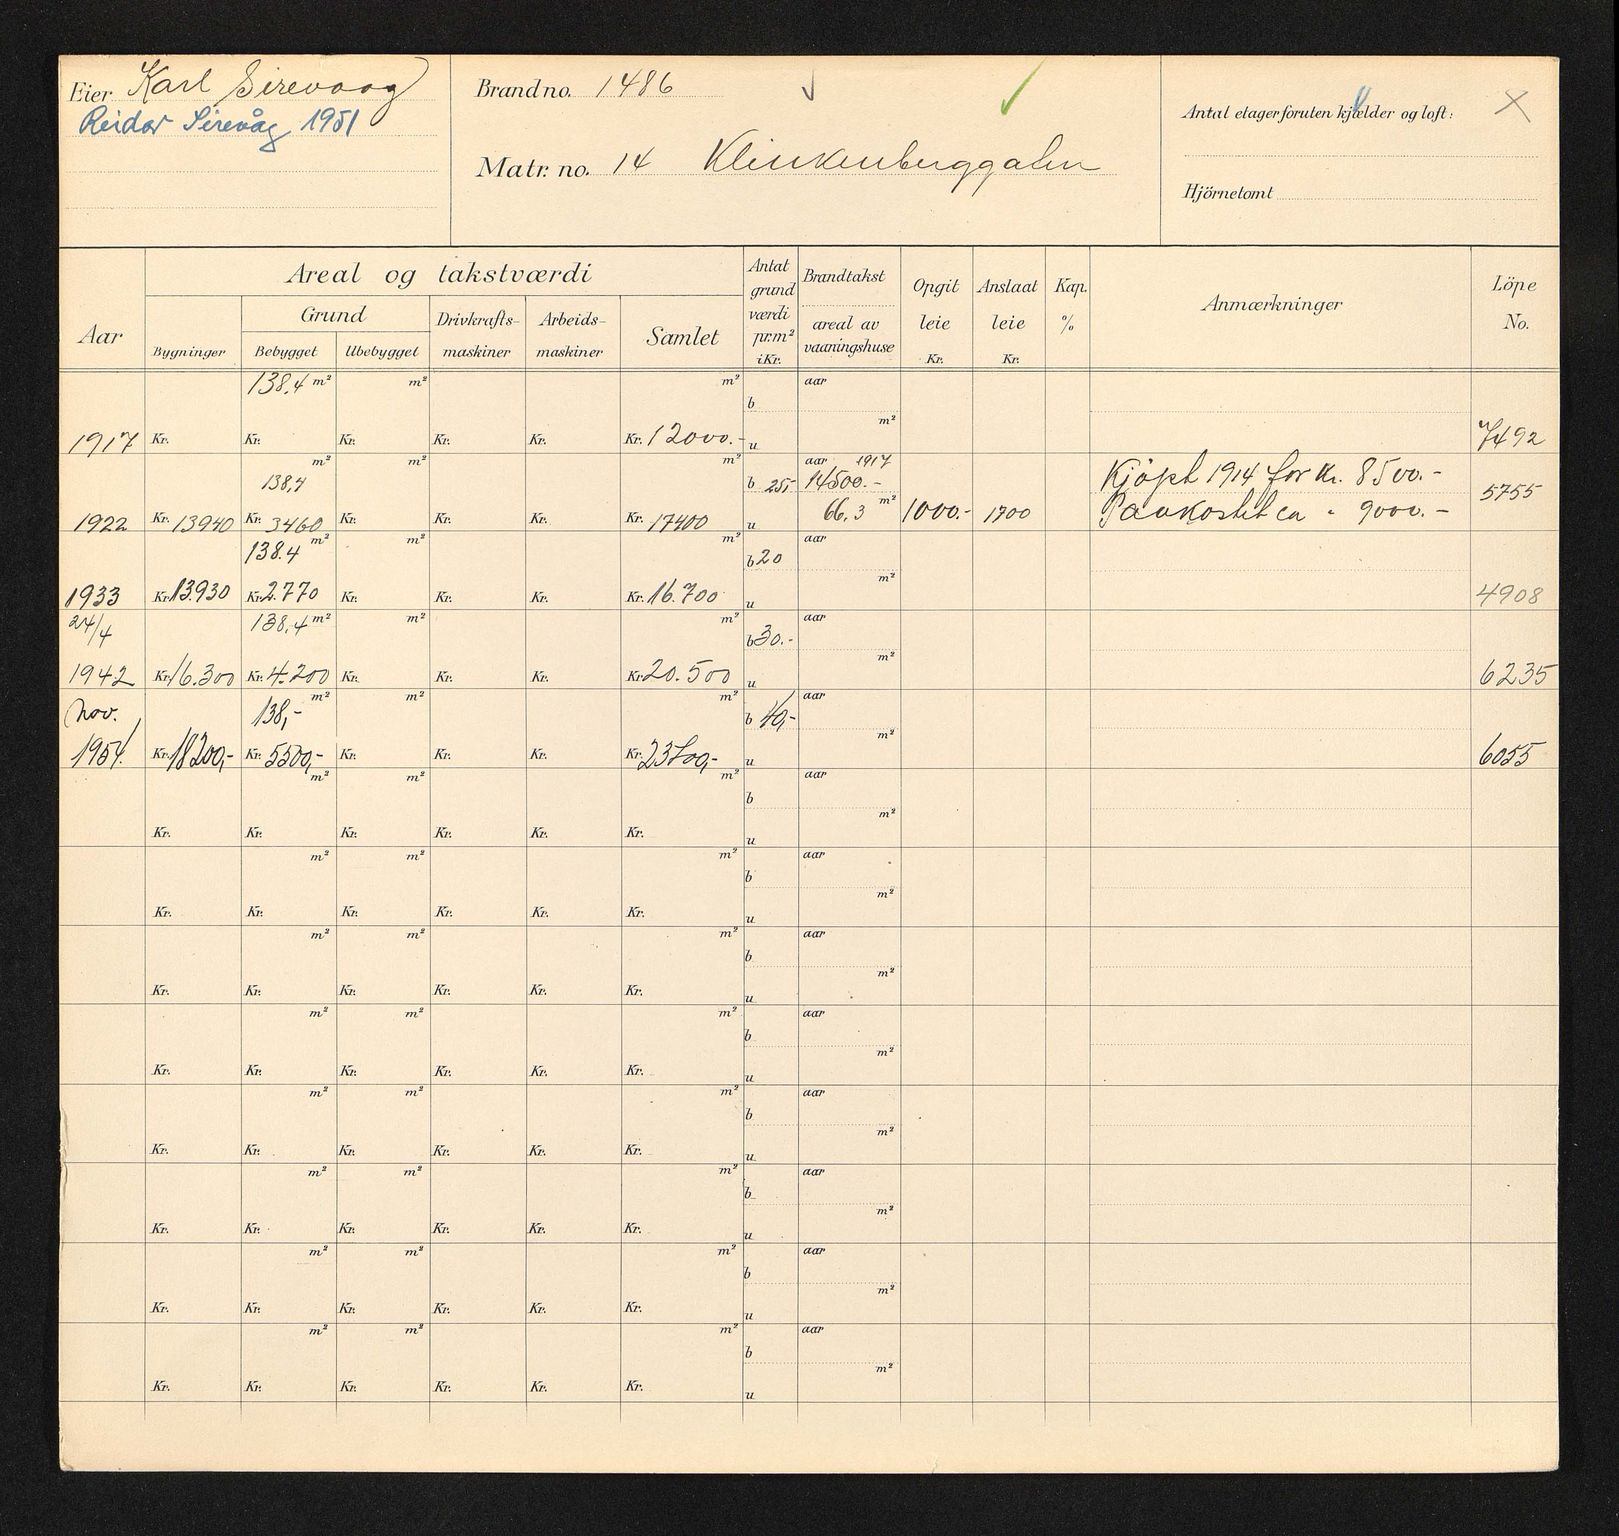 Eier Karl Sirevaag
Reidar Sirevåg 1951
Brand no. 1486
Matr. no. 14 Klinkenberggaten
Antal etager foruten kjælder og loft:
Hjörnetomt
Aar
Areal og takstværdi
Bygninger
Grund
Bebygget Ubebygget
Drivkrafts-
maskiner
Arbeids-
maskiner
Samlet
Antat
grund
værdi
pr. m²
i Kr.
Brandtakst
areal av
vaaningshuse
Opgit
leie
Kr.
Anslaat
leie
Kr.
Kap.
%
Anmærkninger
Löpe
No.
138.4 m² m² m² b aar
m²
1917 Kr. Kr. Kr. Kr. Kr. Kr. 12000.- u 7492
m² m² m² aar 1917
138,4 b 25,- 14500.- Kjöpt 1914 for Kr. 8500.-
66.3 m² 5755
1922 Kr. 13940 Kr. 3460 Kr. Kr. Kr. Kr. 17400 u 1000.- 1700 Paakostet ca " 9000.-
138.4 m² m² m² b 20 aar
m²
1933 Kr. 13.930 Kr. 2.770 Kr. Kr. Kr. Kr. 16.700 u 4908
24/4 138,4 m² m² m² b 30.- aar
m²
1942 Kr. 16.300 Kr. 4.200 Kr. Kr. Kr. Kr. 20.500 u 6235
Nov. 138,- m² m² m² b 40,- aar
m²
1954. Kr. 18200,- Kr. 5500,- Kr. Kr. Kr. Kr. 23700,- u 6055
m² m² m² b aar
m²
Kr. Kr. Kr. Kr. Kr. Kr. u
m² m² m² b aar
m²
Kr. Kr. Kr. Kr. Kr. Kr. u
m² m² m² b aar
m²
Kr. Kr. Kr. Kr. Kr. Kr. u
m² m² m² b aar
m²
Kr. Kr. Kr. Kr. Kr. Kr. u
m² m² m² b aar
m²
Kr. Kr. Kr. Kr. Kr. Kr. u
m² m² m² b aar
m²
Kr. Kr. Kr. Kr. Kr. Kr. u
m² m² m² b aar
m²
Kr. Kr. Kr. Kr. Kr. Kr. u
m² m² m² b aar
m²
Kr. Kr. Kr. Kr. Kr. Kr. u